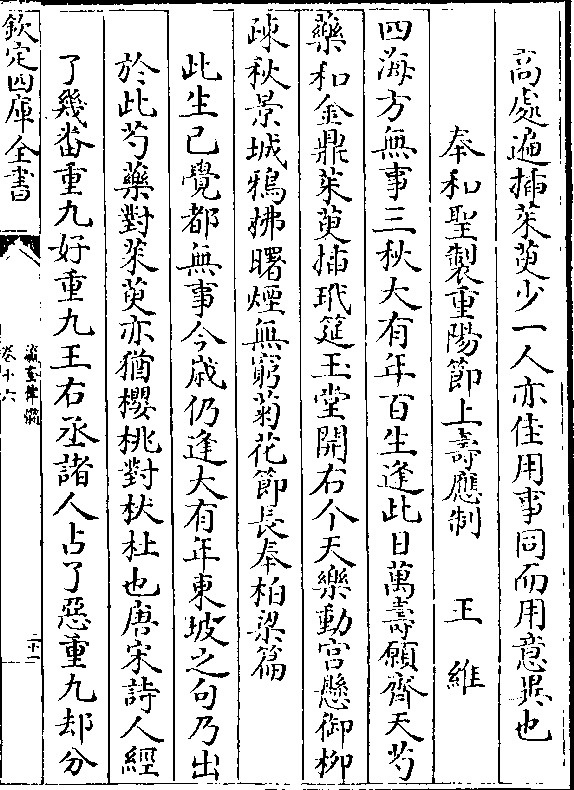 高處遍插茱萸少一人亦佳用事同而用意異也
奉和聖製重陽節上壽應制　王維
四海方無事三秋大有年百生逢此日萬壽願齊天芍
藥和金鼎茱萸插玳筵玉堂開右个天樂動宮懸御柳
疎秋景城鴉拂曙煙無窮菊花節長奉柏梁篇
此生已覺都無事今歲仍逢大有年東坡之句乃出
於此芍藥對茱萸亦猶櫻桃對杕杜也唐宋詩人經
了幾畨重九好重九王右丞諸人占了惡重九却分
欽定四庫全書
瀛奎律髓
卷十六
二十一